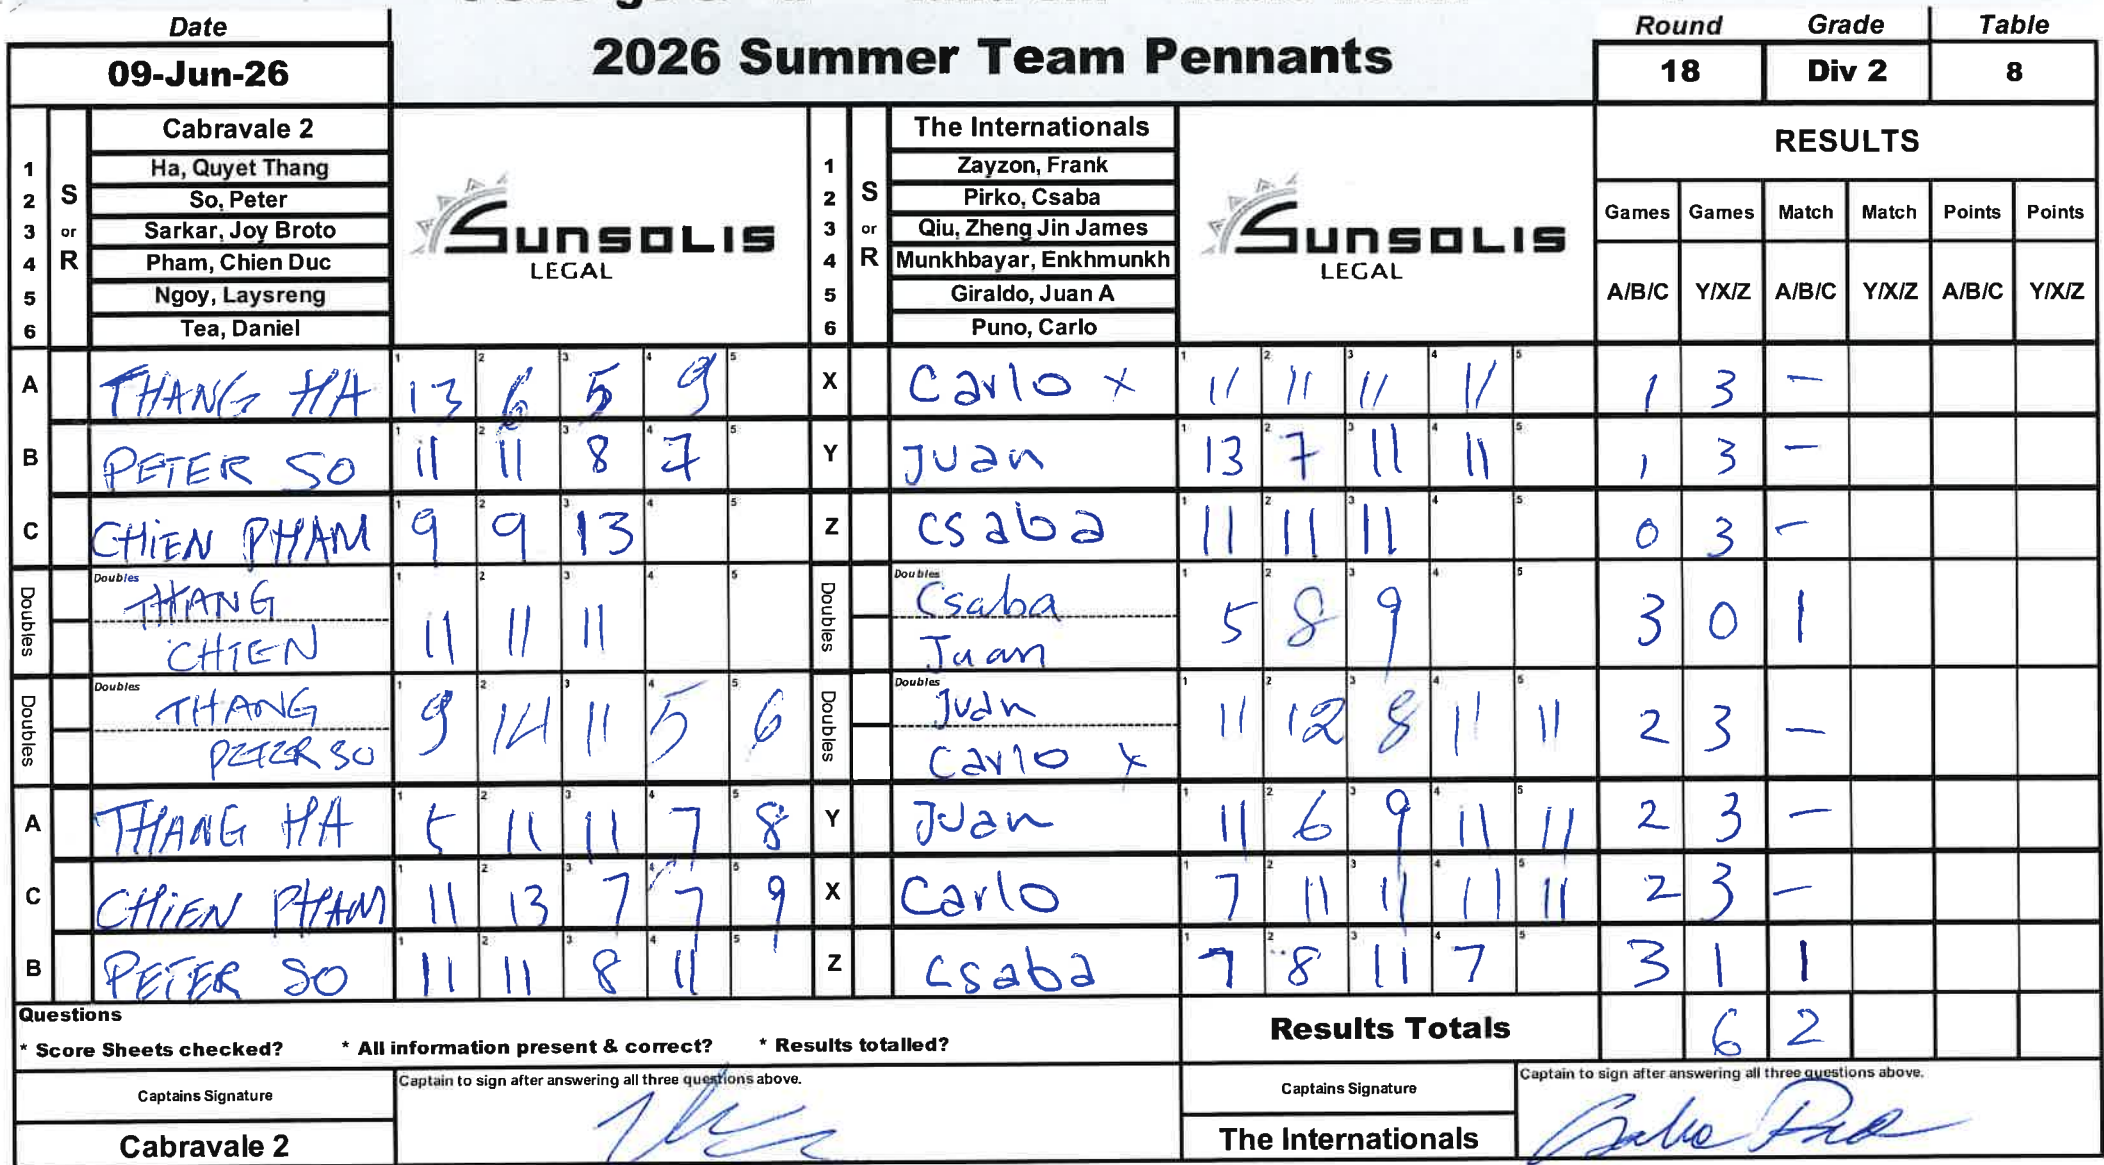 Date
09-Jun-26
2026 Summer Team Pennants
Round Grade Table
18 Div 2 8
Cabravale 2
1 Ha, Quyet Thang
2 So, Peter
3 Sarkar, Joy Broto
4 Pham, Chien Duc
5 Ngoy, Laysreng
6 Tea, Daniel
S or R
SUNSOLIS
LEGAL
The Internationals
1 Zayzon, Frank
2 Pirko, Csaba
3 Qiu, Zheng Jin James
4 Munkhbayar, Enkhmunkh
5 Giraldo, Juan A
6 Puno, Carlo
S or R
SUNSOLIS
LEGAL
RESULTS
Games Games Match Match Points Points
A/B/C Y/X/Z A/B/C Y/X/Z A/B/C Y/X/Z
A THANG HA 13 6 5 9 X Carlo x 11 11 11 11 1 3 -
B PETER SO 11 11 8 7 Y Juan 13 7 11 11 1 3 -
C CHIEN PHAM 9 9 13 Z Csaba 11 11 11 0 3 -
Doubles THANG CHIEN 11 11 11 Doubles Csaba Juan 5 8 9 3 0 1
Doubles THANG PETER SO 9 14 11 5 6 Doubles Juan Carlo x 11 12 8 11 11 2 3 -
A THANG HA 5 11 11 7 8 Y Juan 11 6 9 11 11 2 3 -
C CHIEN PHAM 11 13 7 7 9 X Carlo 7 11 11 11 11 2 3 -
B PETER SO 11 11 8 11 Z Csaba 7 8 11 7 3 1 1
Questions
* Score Sheets checked? * All information present & correct? * Results totalled?
Results Totals 6 2
Captains Signature
Captain to sign after answering all three questions above.
Cabravale 2
Captains Signature
Captain to sign after answering all three questions above.
The Internationals